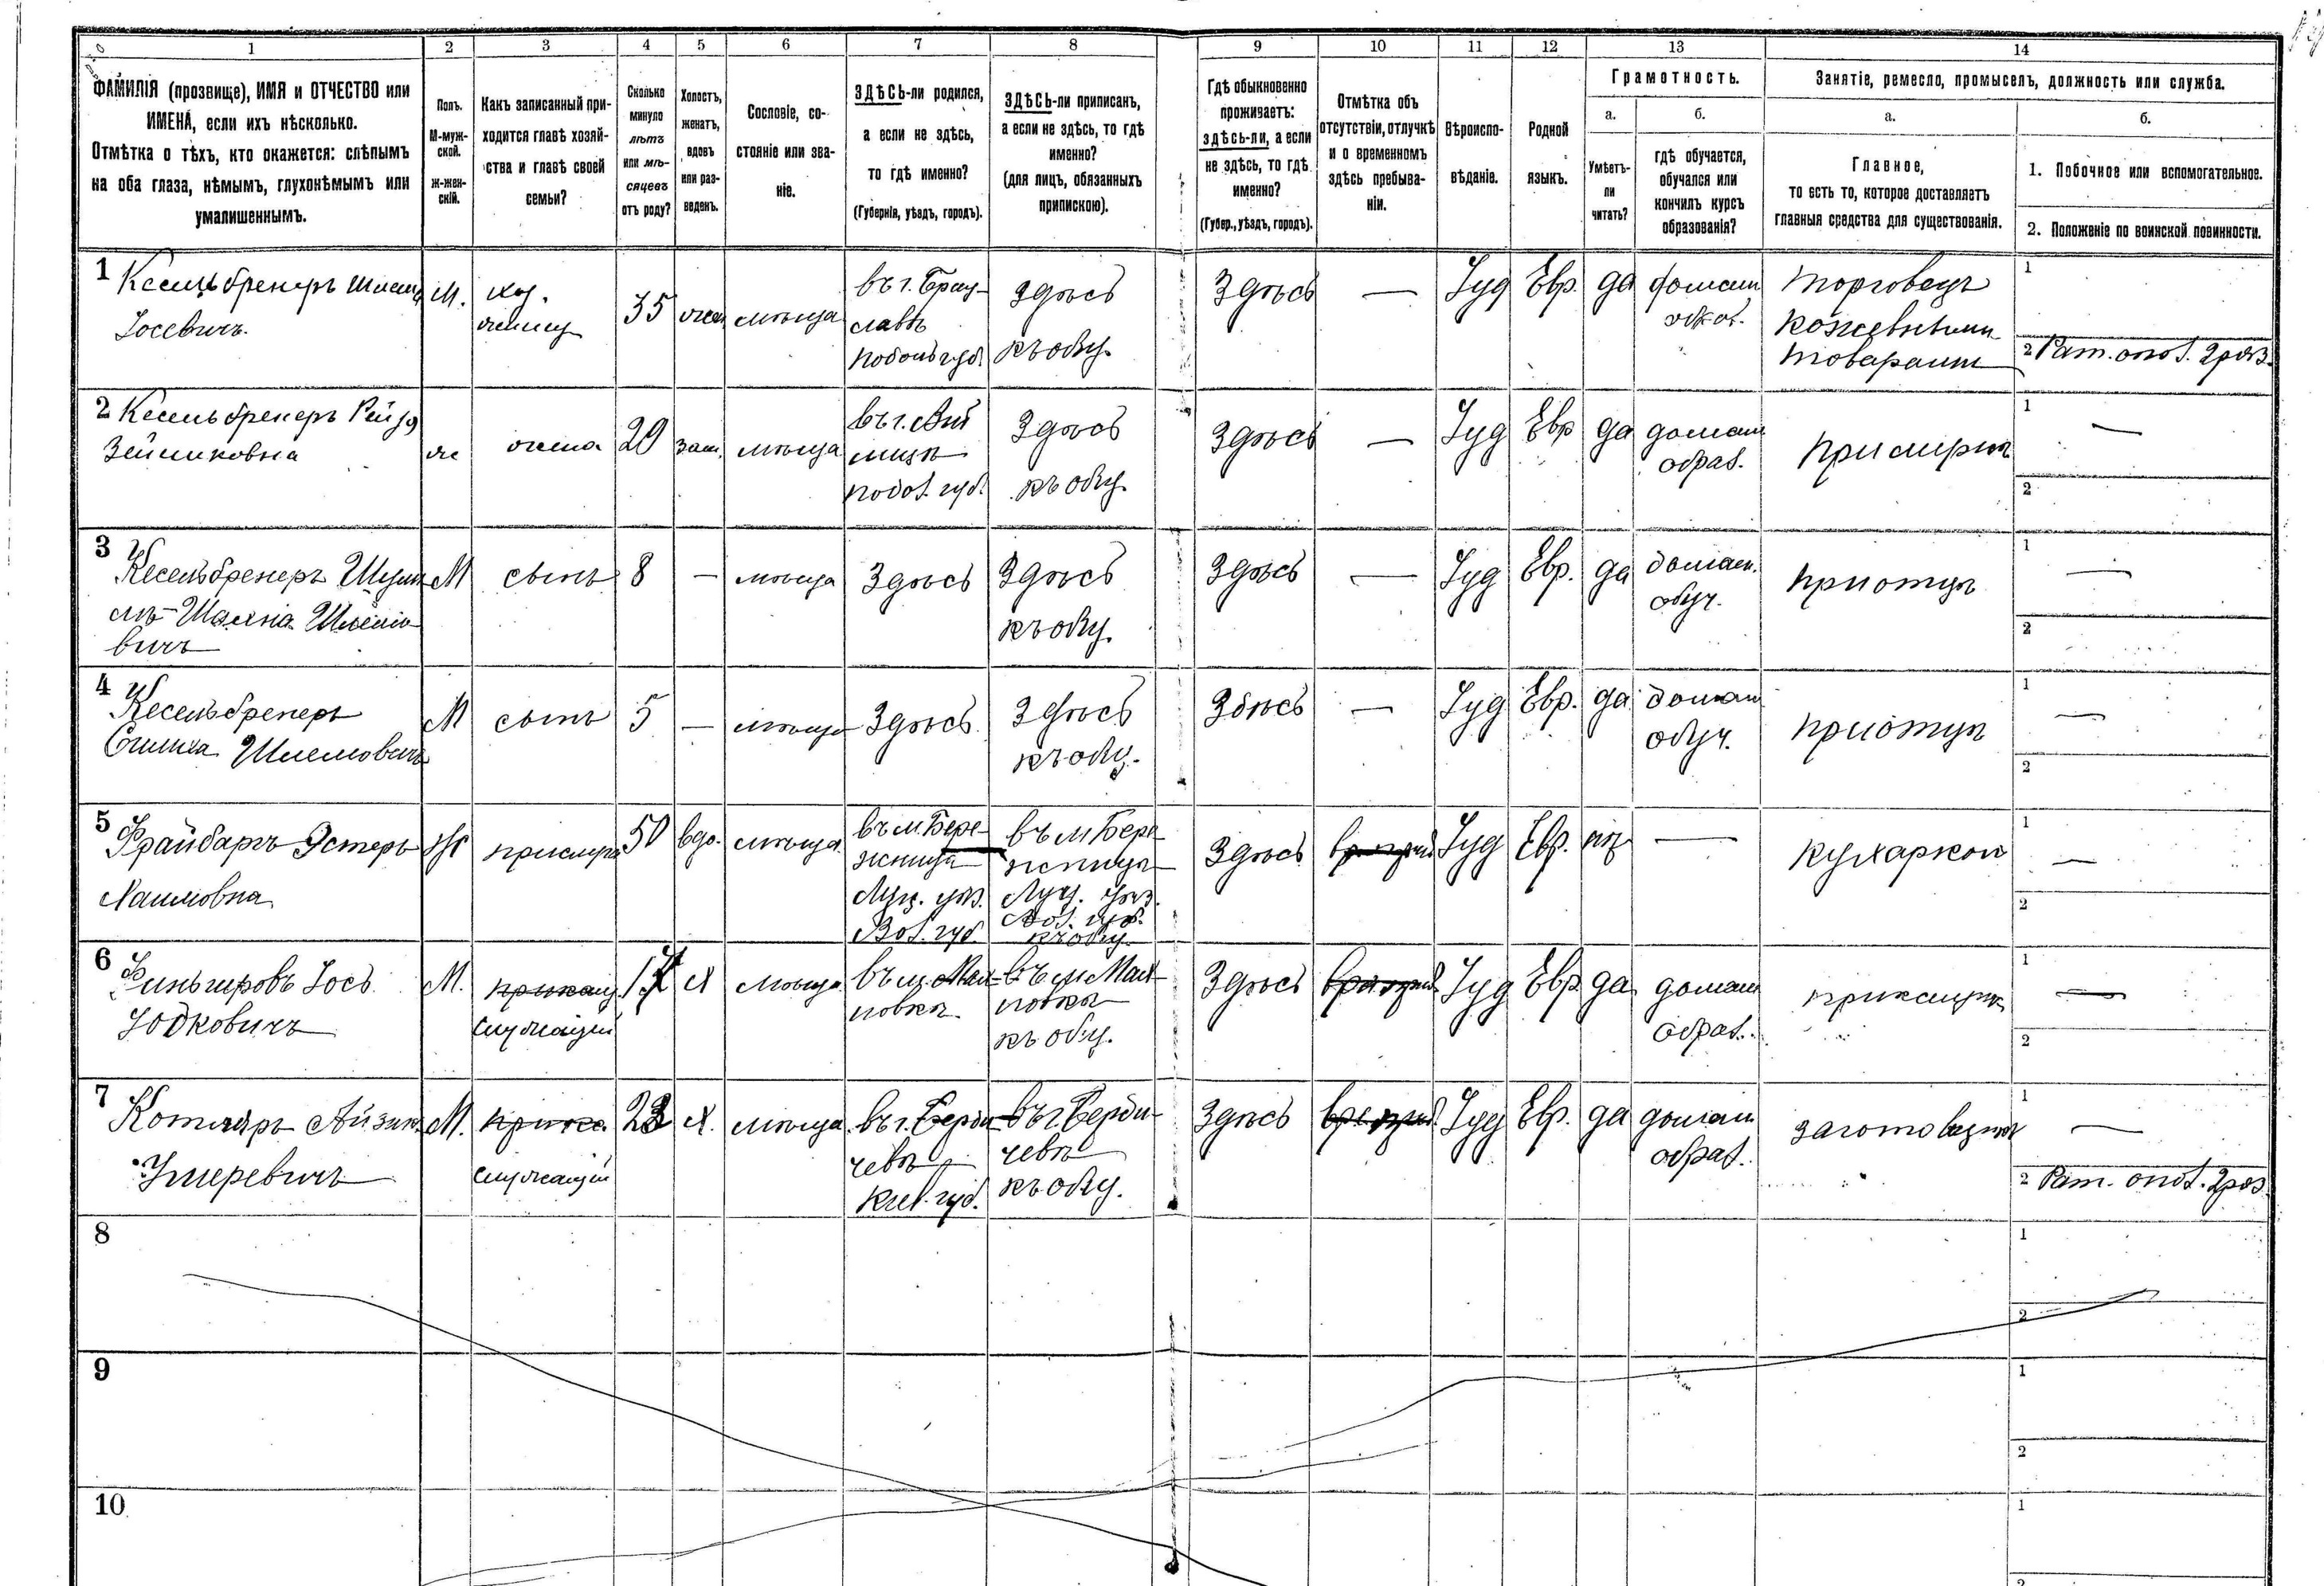 1 2 3 4 5 6 7 8 9 10 11 12 13 14
ФАМИЛІЯ (прозвище), ИМЯ и ОТЧЕСТВО или
ИМЕНА, если ихъ нѣсколько.
Отмѣтка о тѣхъ, кто окажется: слѣпымъ
на оба глаза, нѣмымъ, глухонѣмымъ или
умалишеннымъ.
Полъ.
М-муж-
ской.
Ж-жен-
скій.
Какъ записанный при-
ходится главѣ хозяй-
ства и главѣ своей
семьи?
Сколько
минуло
лѣтъ
или мѣ-
сяцевъ
отъ роду?
Холостъ,
женатъ,
вдовъ
или раз-
веденъ.
Сословіе, со-
стояніе или зва-
ніе.
ЗДѢСЬ-ли родился,
а если не здѣсь,
то гдѣ именно?
(Губернія, уѣздъ, городъ).
ЗДѢСЬ-ли приписанъ,
а если не здѣсь, то гдѣ
именно?
(для лицъ, обязанныхъ
припискою).
Гдѣ обыкновенно
проживаетъ:
здѣсь-ли, а если
не здѣсь, то гдѣ
именно?
(Губер., уѣздъ, городъ).
Отмѣтка объ
отсутствіи, отлучкѣ
и о временномъ
здѣсь пребыва-
ніи.
Вѣроиспо-
вѣданіе.
Родной
языкъ.
Грамотность.
а.
Умѣетъ-
ли
читать?
б.
гдѣ обучается,
обучался или
кончилъ курсъ
образованія?
Занятіе, ремесло, промыселъ, должность или служба.
а.
Главное,
то есть то, которое доставляетъ
главныя средства для существованія.
б.
1. Побочное или вспомогательное.
2. Положеніе по воинской повинности.
1 Кесельбренеръ
Іосевичъ.
М.
35
мѣща
въ г. Брац-
славѣ
Подол. губ.
Здѣсь
къ общ.
Здѣсь
—
Іуд
Евр.
да
домаш
Торговецъ
кожевными
товарами
1
2 Рат. опол. 2 раз.
2 Кесельбренеръ Рейзя
Зейликовна
ж
жена
29
зам.
мѣща
въ г.
Подол. губ.
Здѣсь
къ общ.
Здѣсь
—
Іуд
Евр
да
домаш
образ.
при мужѣ
1 —
2
3 Кесельбренеръ
Шахна
вичъ
М
сынъ
8
—
мѣща
Здѣсь
Здѣсь
къ общ.
Здѣсь
—
Іуд
Евр.
да
домаш.
обуч.
при отцѣ
1 —
2
4 Кесельбренеръ
Шлемовичъ
М
сынъ
5
—
мѣща
Здѣсь
Здѣсь
къ общ.
Здѣсь
—
Іуд
Евр.
да
домаш
обуч.
при отцѣ
1 —
2
5 Фрайбаргъ Эстеръ
Хаимовна
Ж
прислуга
50
вдо.
мѣща
въ м. Бере-
жница
Луц. уѣз.
Вол. губ.
въ м Бере
жница
Луц. уѣз.
Вол. губ.
къ общ.
Здѣсь
Іуд
Евр.
—
кухаркой
1 —
2
6 Іось
Іодковичъ
М.
служащій
Х
мѣща
въ м.
новка
въ м
новка
къ общ.
Здѣсь
Іуд
Евр
да
домаш
образ.
прикащикъ
1 —
2
7 Котляръ Айзикъ
Умеревичъ
М.
служащій
23
Х.
мѣща
въ г. Берди-
чевѣ
Кіев. губ.
въ г. Берди-
чевѣ
къ общ.
Здѣсь
Іуд
Евр.
да
домаш
образ.
заготовщикъ
1 —
2 Рат. опол. 2 раз
8
1
2
9
1
2
10
1
2